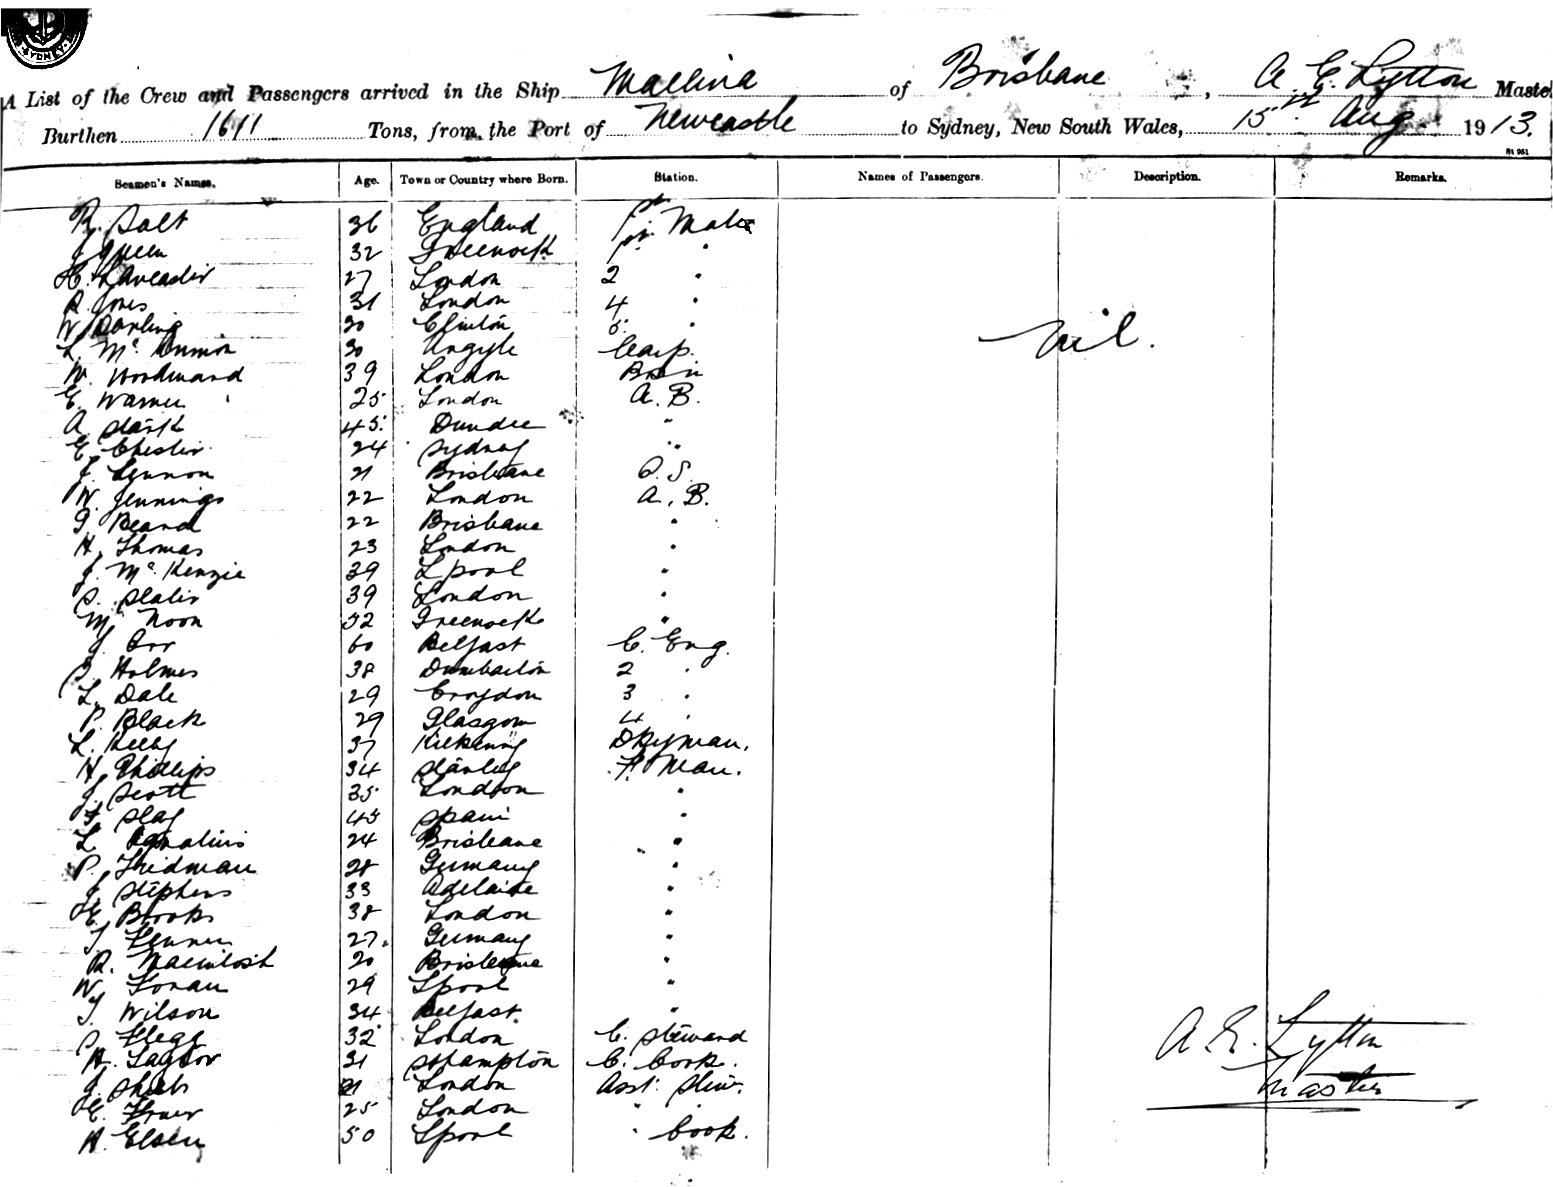 SYDNEY
A List of the Crew and Passengers arrived in the Ship Mallina of Brisbane, A. E. Lytton Master
Burthen 1611 Tons, from the Port of Newcastle to Sydney, New South Wales, 15th Aug 1913.
Seamen's Names. Age. Town or Country where Born. Station. Names of Passengers. Description. Remarks.
R. Salt 36 England Mate
J 32 Greenock "
H. 27 London 2 "
R. Jones 31 London 4 "
W. Darling 30 Clinton 5 "
L. Mc 30 Argyle Carp.
nil.
W. Woodward 39 London
E. Warner 25 London A. B.
A. 45 Dundee "
E. Chester 24 Sydney "
J. Lennon 21 Brisbane O. S.
W. Jennings 22 London A. B.
G. Beard 22 Brisbane "
H. Thomas 23 London "
J. McKenzie 39 Lpool "
S. Slater 39 London "
M. Noon 32 Greenock "
J. Orr 60 Belfast C. Eng.
Holmes 38 Dumbarton 2 "
L. Dale 29 Croydon 3 "
P. Black 29 Glasgow 4 "
L. Kelly 37 Kilkenny Dkyman.
H. Phillips 34 Stanley F. Man.
J. Scott 35 London "
45 Spain "
L. 24 Brisbane "
P. Fridman 28 Germany "
J. Stephens 33 Adelaide "
E. Brooks 38 London "
27 Germany "
R. Macintosh 20 Brisbane "
W. 29 Lpool "
J. Wilson 34 Belfast "
Flegg 32 London C. Steward
A. E. Lytton
H. Taylor 31 Sthampton C. Cook.
J. 21 London Asst. Stew.
Master
E. 25 London " "
H. 50 Lpool " Cook.